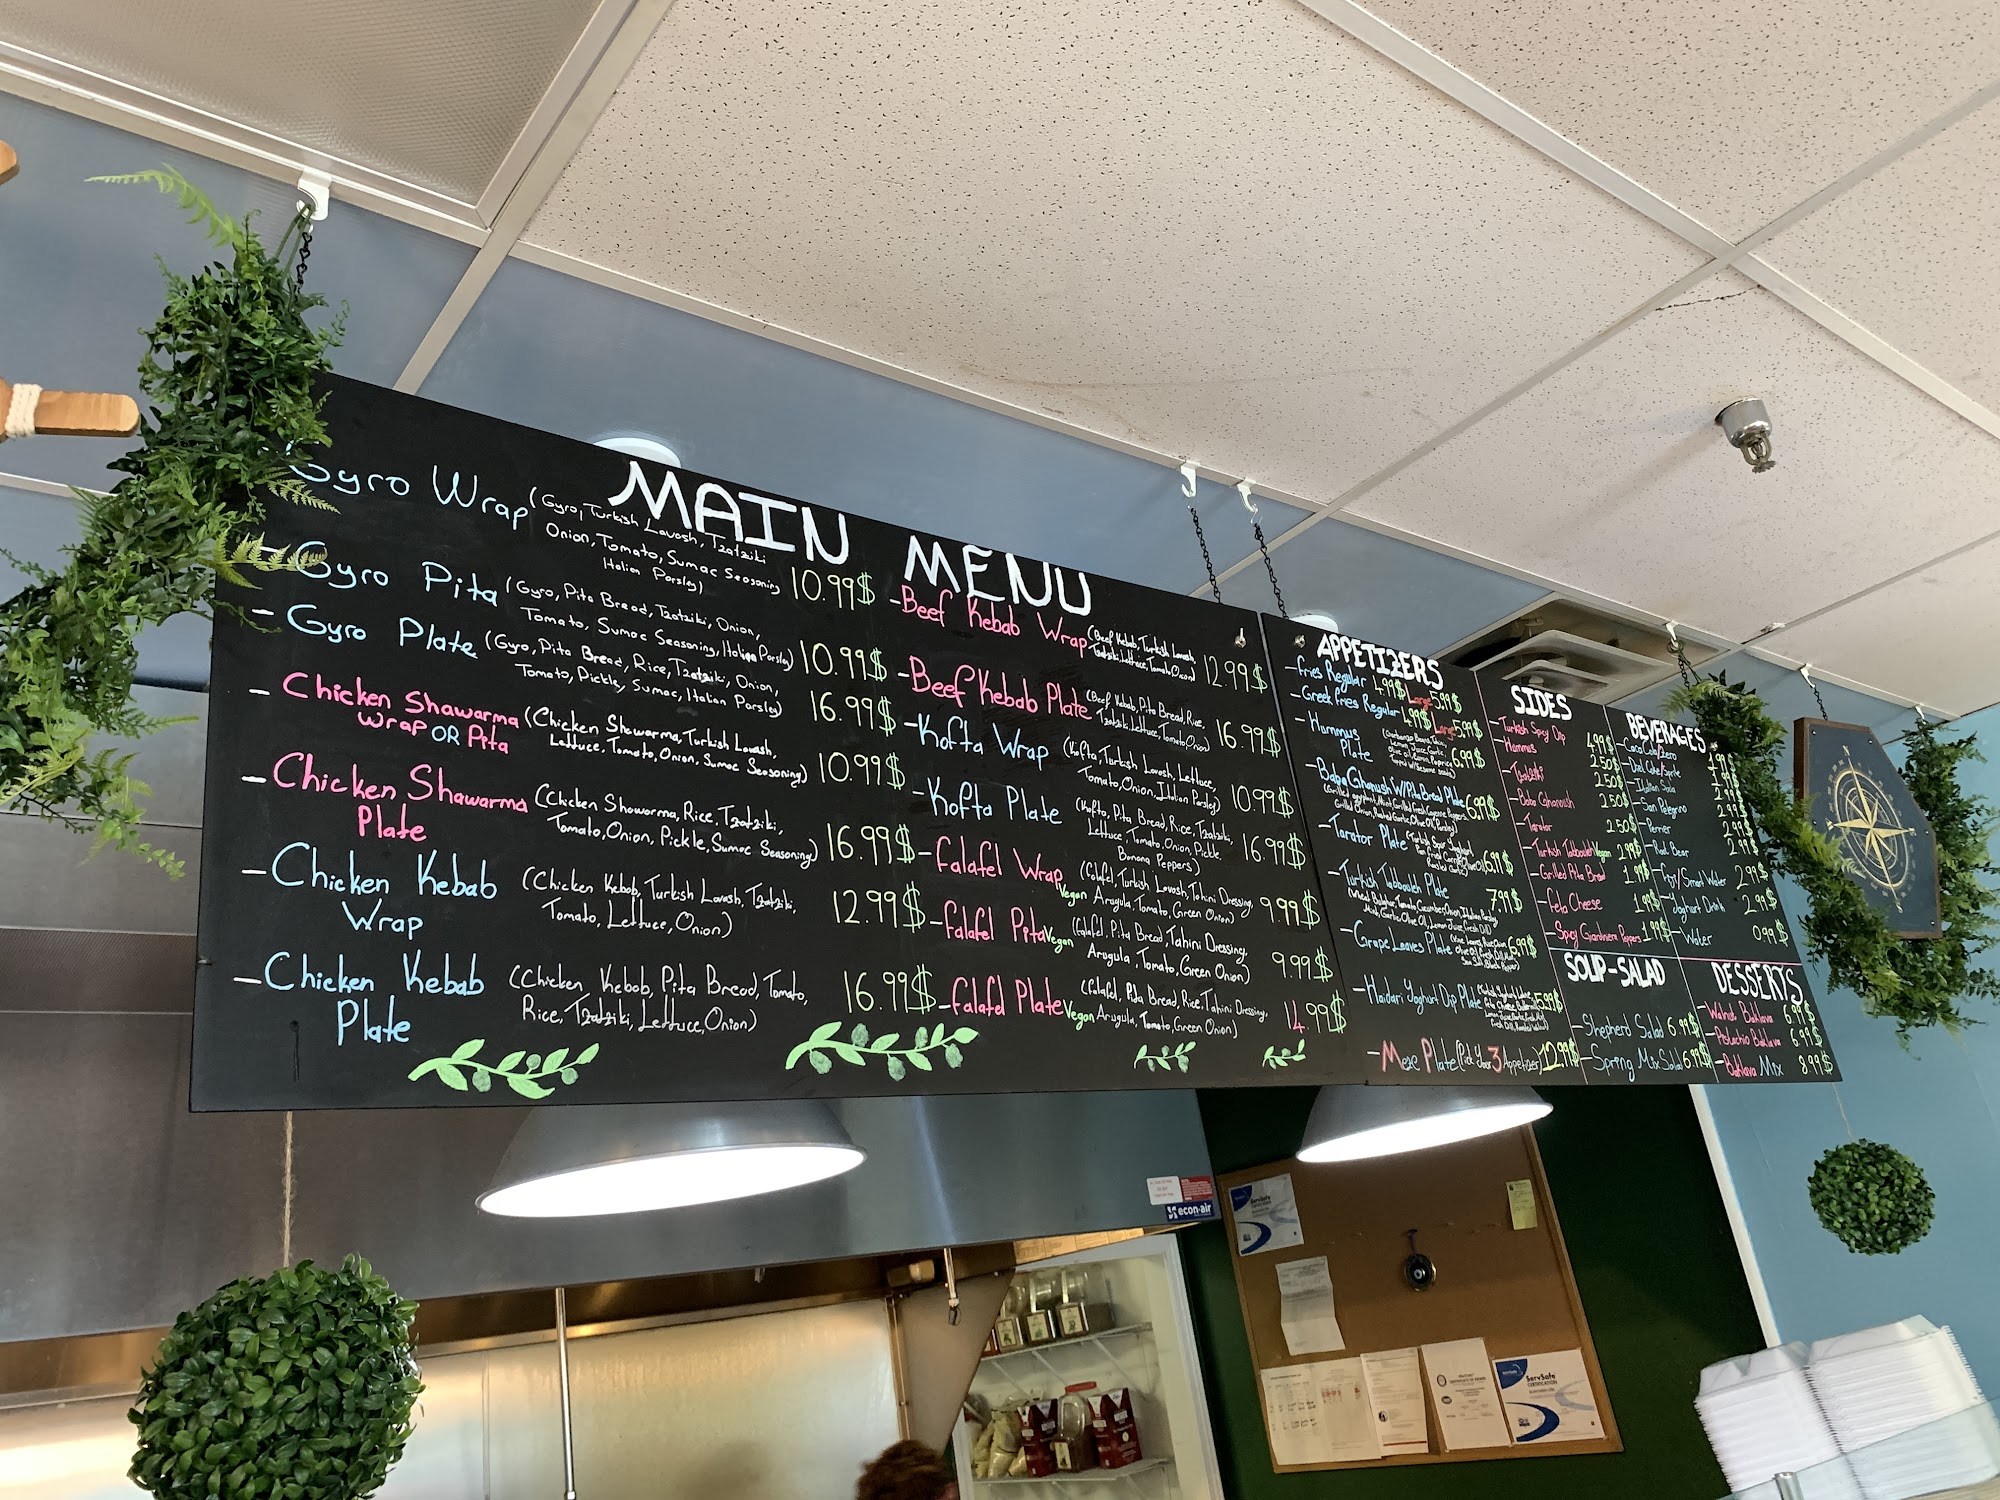 MAIN MENU
Gyro Wrap (Gyro, Turkish Lavash, Tzatziki
Onion, Tomato, Sumac Seasoning
Italian Parsley) 10.99$
- Gyro Pita (Gyro, Pita Bread, Tzatziki, Onion,
Tomato, Sumac Seasoning, Italian Parsley) 10.99$
- Gyro Plate (Gyro, Pita Bread, Rice, Tzatziki, Onion,
Tomato, Pickle, Sumac, Italian Parsley) 16.99$
- Chicken Shawarma (Chicken Shawarma, Turkish Lavash,
Wrap OR Pita Lettuce, Tomato, Onion, Sumac Seasoning) 10.99$
- Chicken Shawarma (Chicken Shawarma, Rice, Tzatziki,
Plate Tomato, Onion, Pickle, Sumac Seasoning) 16.99$
- Chicken Kebab (Chicken Kebab, Turkish Lavash, Tzatziki,
Wrap Tomato, Lettuce, Onion) 12.99$
- Chicken Kebab (Chicken Kebab, Pita Bread, Tomato,
Plate Rice, Tzatziki, Lettuce, Onion) 16.99$
- Beef Kebab Wrap (Beef Kebab, Turkish Lavash,
Tzatziki, Lettuce, Tomato, Onion) 12.99$
- Beef Kebab Plate (Beef Kebab, Pita Bread, Rice,
Tzatziki, Lettuce, Tomato, Onion) 16.99$
- Kofta Wrap (Kofta, Turkish Lavash, Lettuce,
Tomato, Onion, Italian Parsley) 10.99$
- Kofta Plate (Kofta, Pita Bread, Rice, Tzatziki,
Lettuce, Tomato, Onion, Pickle,
Banana Peppers) 16.99$
- Falafel Wrap Vegan (Falafel, Turkish Lavash, Tahini Dressing,
Arugula, Tomato, Green Onion) 9.99$
- Falafel Pita Vegan (Falafel, Pita Bread, Tahini Dressing,
Arugula, Tomato, Green Onion) 9.99$
- Falafel Plate Vegan (Falafel, Pita Bread, Rice, Tahini Dressing,
Arugula, Tomato, Green Onion) 14.99$
APPETIZERS
- Fries Regular 4.99$ Large 5.99$
- Greek Fries Regular 4.99$ Large 5.99$
- Hummus
Plate 6.99$
- Baba Ghanoush W/ Pita Bread Plate 6.99$
- Tarator Plate 6.99$
- Turkish Tabbouleh Plate 7.99$
- Grape Leaves Plate 6.99$
- Haidari Yoghurt Dip Plate 5.99$
- Meze Plate (Pick Your 3 Appetizer) 12.99$
SIDES
- Turkish Spicy Dip 4.99$
- Hummus 2.50$
- Tzatziki 2.50$
- Baba Ghanoush 2.50$
- Tarator 2.50$
- Turkish Tabbouleh Vegan 2.99$
- Grilled Pita Bread 1.99$
- Feta Cheese 1.99$
- Spicy Giardiniera Peppers 1.99$
BEVERAGES
- Coca Cola/Zero 1.99$
- Diet Coke/Sprite 1.99$
- Italian Soda 2.99$
- San Pelegrino 2.99$
- Perrier 2.99$
- Root Bear 2.99$
- Fiji/Smart Water 2.99$
- Yoghurt Drink 2.99$
- Water 0.99$
SOUP-SALAD
- Shepherd Salad 6.99$
- Spring Mix Salad 6.99$
DESSERTS
- Walnut Baklava 6.99$
- Pistachio Baklava 6.99$
- Baklava Mix 8.99$
econ-air
ServSafe
ServSafe
CERTIFICATION